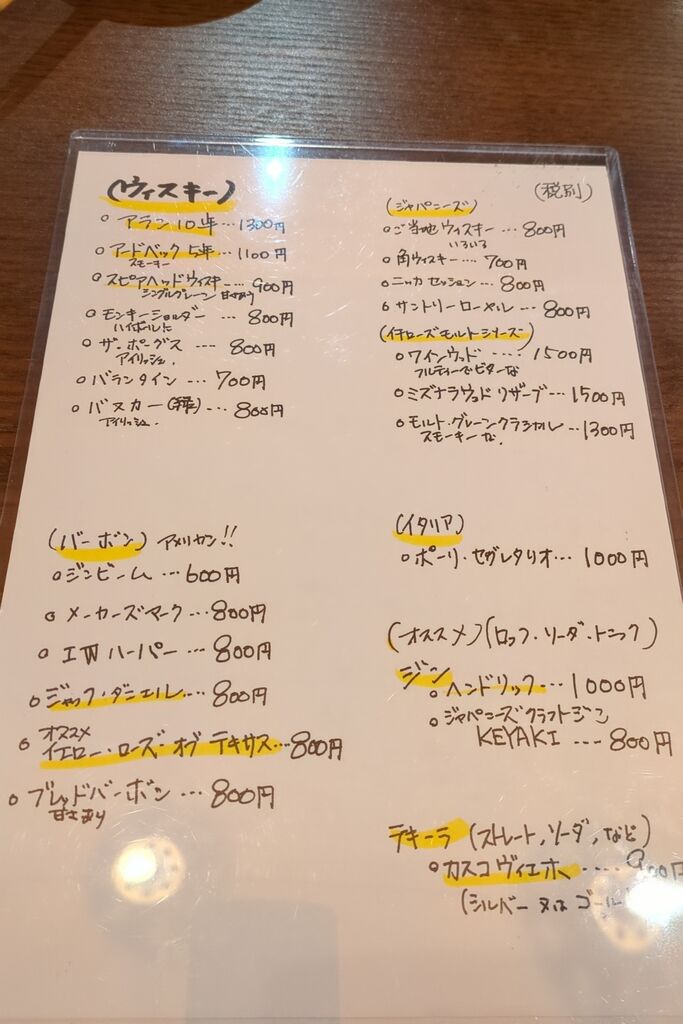 (ウィスキー)
○ アラン 10年…1300円
○ アードベック 5年…1100円
スモーキー
○ スピアヘッドウィスキー…900円
シングルグレーン 甘さあり
○ モンキーショルダー…800円
ハイボールに
○ ザ・ポーグス…800円
アイリッシュ.
○ バランタイン…700円
○ バスカー…800円
アイリッシュ.
(バーボン) アメリカン!!
○ ジンビーム…600円
○ メーカーズマーク…800円
○ IWハーパー…800円
○ ジャック・ダニエル…800円
オススメ
○ イエロー・ローズ・オブ テキサス…800円
○ ブレッドバーボン…800円
甘さあり
(税別)
(ジャパニーズ)
○ ご当地ウィスキー…800円
いろいろ
○ 角ウィスキー…700円
○ ニッカ セッション…800円
○ サントリーローヤル…800円
(イチローズモルトシリーズ)
○ ワインウッド…1500円
フルーティーでビターな
○ ミズナラウッド リザーブ…1500円
○ モルト・グレーンクラシカル…1300円
スモーキーな.
(イタリア)
○ ポーリ・セグレタリオ…1000円
(オススメ)(ロック・ソーダ・トニック)
ジン
○ ヘンドリック…1000円
○ ジャパニーズクラフトジン
KEYAKI…800円
テキーラ (ストレート,ソーダ,など)
○ カスコヴィエホ…900円
(シルバー 又は ゴール